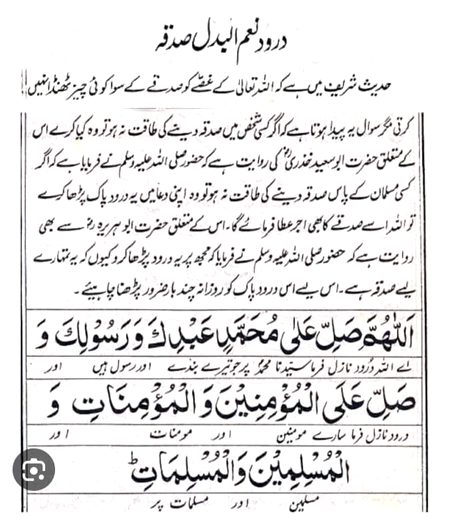 درود نعم البدل صدقہ
حدیث شریف میں ہے کہ اللہ تعالیٰ کے غصّے کو صدقے کے سوا کوئی چیز ٹھنڈا نہیں
کرتی مگر سوال یہ پیدا ہوتا ہے کہ اگر کسی شخص میں صدقہ دینے کی طاقت نہ ہو تو وہ کیا کرے اس
کے متعلق حضرت ابو سعید خدری رضؓ کی روایت ہے کہ حضور صلی اللہ علیہ وسلم نے فرمایا ہے کہ اگر
کسی مسلمان کے پاس صدقہ دینے کی طاقت نہ ہو تو وہ اپنی دعا میں یہ درود پاک پڑھا کرے
تو اللہ اسے صدقے کا بھی اجر عطا فرمائے گا۔ اس کے متعلق حضرت ابو ہریرہ رضؓ سے بھی
روایت ہے کہ حضور صلی اللہ علیہ وسلم نے فرمایا کہ مجھ پر یہ درود پڑھا کرو کیوں کہ یہ تمہارے
لیے صدقہ ہے۔ اس لیے اس درود پاک کو روزانہ چند بار ضرور پڑھنا چاہیئے۔
اَللّٰهُمَّ صَلِّ عَلٰى مُحَمَّدٍ عَبْدِكَ وَرَسُوْلِكَ وَ
اے اللہ درود نازل فرما سیدنا محمدؐ پر جو تیرے بندے اور رسول ہیں اور
صَلِّ عَلَى الْمُؤْمِنِيْنَ وَالْمُؤْمِنَاتِ وَ
درود نازل فرما سارے مومنین اور مومنات اور
الْمُسْلِمِيْنَ وَالْمُسْلِمَاتِ ط
مسلمین اور مسلمات پر